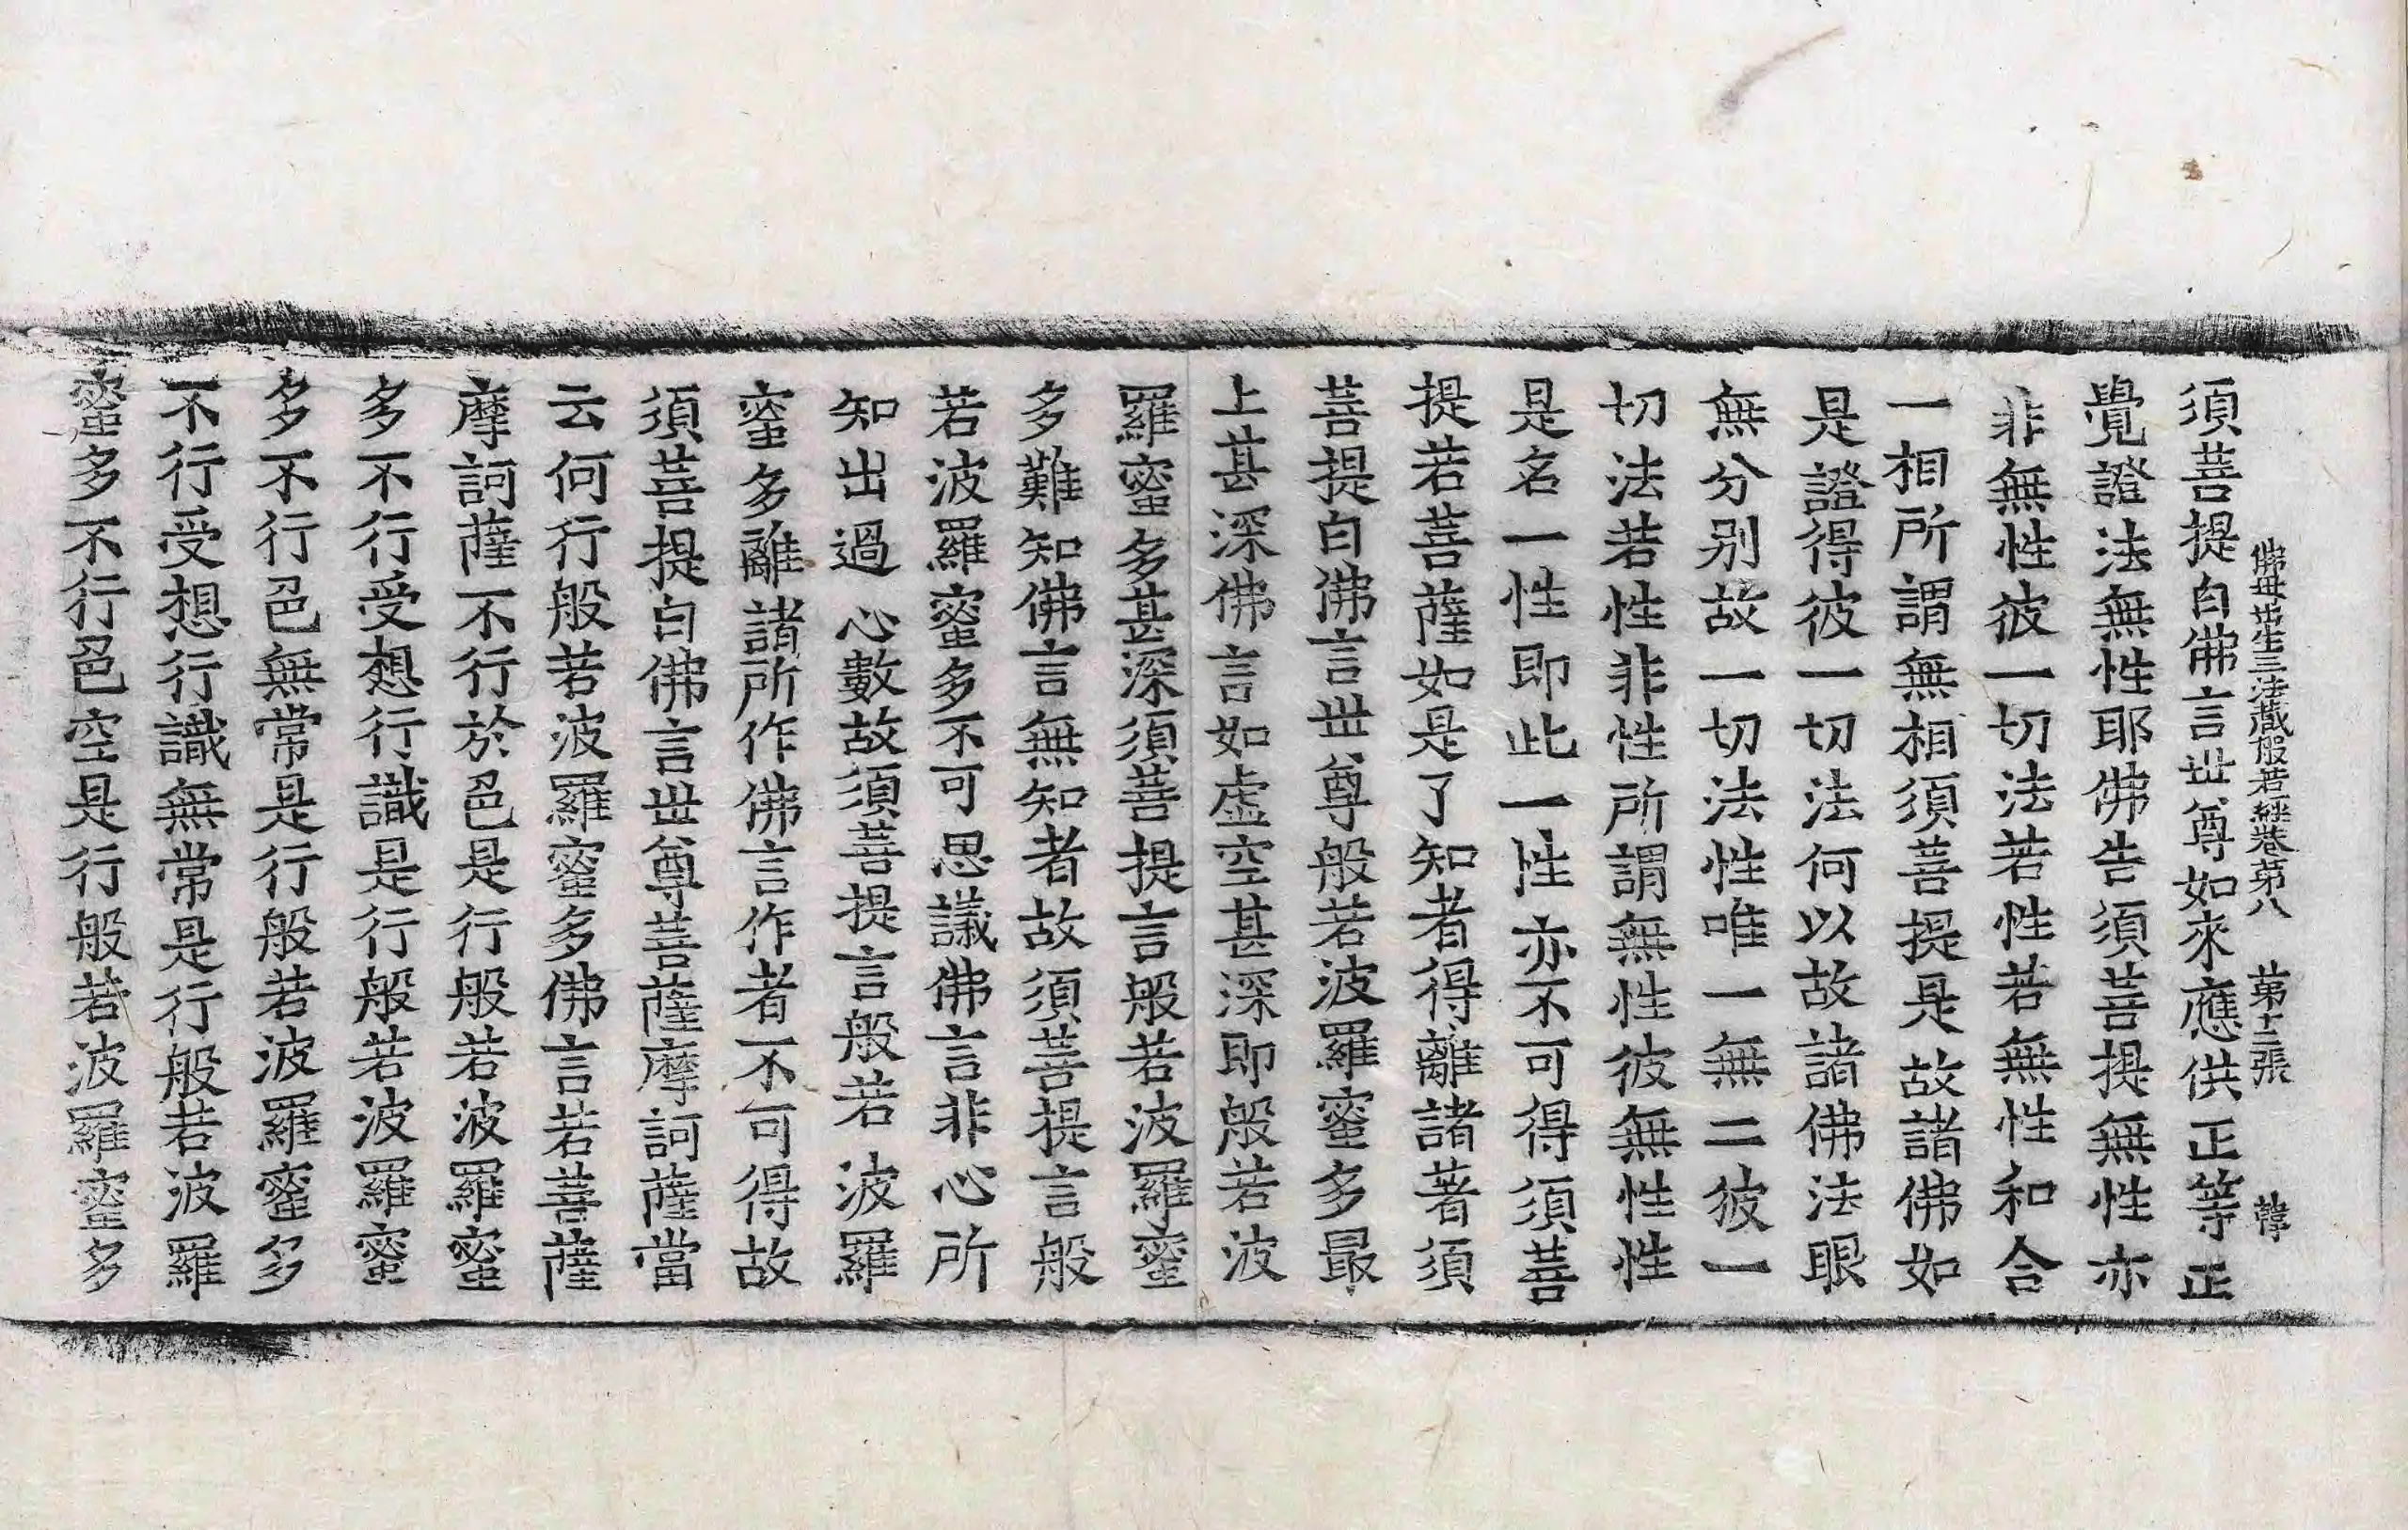 佛母出生三法藏般若經卷第八 第十二張 韓
須菩提白佛言世尊如來應供正等正
覺證法無性耶佛告須菩提無性亦
非無性彼一切法若性若無性和合
一相所謂無相須菩提是故諸佛如
是證得彼一切法何以故諸佛法眼
無分別故一切法性唯一無二彼一
切法若性非性所謂無性彼無性性
是名一性即此一性亦不可得須菩
提若菩薩如是了知者得離諸著須
菩提白佛言世尊般若波羅蜜多最
上甚深佛言如虛空甚深即般若波
羅蜜多甚深須菩提言般若波羅蜜
多難知佛言無知者故須菩提言般
若波羅蜜多不可思議佛言非心所
知出過心數故須菩提言般若波羅
蜜多離諸所作佛言作者不可得故
須菩提白佛言世尊菩薩摩訶薩當
云何行般若波羅蜜多佛言若菩薩
摩訶薩不行於色是行般若波羅蜜
多不行受想行識是行般若波羅蜜
多不行色無常是行般若波羅蜜多
不行受想行識無常是行般若波羅
蜜多不行色空是行般若波羅蜜多